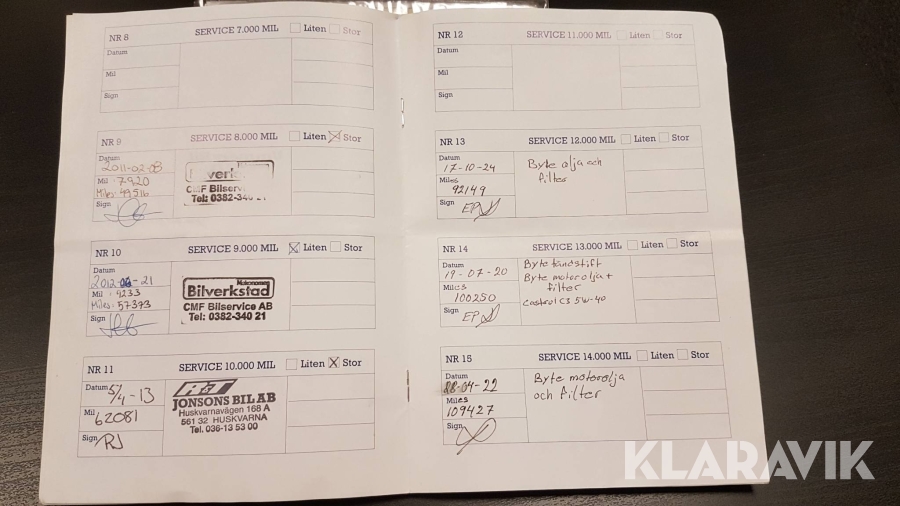 NR 8 SERVICE 7.000 MIL Liten Stor
Datum
Mil
Sign
NR 9 SERVICE 8.000 MIL Liten Stor
Datum
2011-02-08
Mil 7920
Miles: 49516
Sign
CMF Bilserv
Tel: 0382-340 21
NR 10 SERVICE 9.000 MIL Liten Stor
Datum
2012 -21
Mil
Miles: 57373
Sign
Mekonomen
Bilverkstad
CMF Bilservice AB
Tel: 0382-340 21
NR 11 SERVICE 10.000 MIL Liten Stor
Datum 5/4-13
Mil
62081
Sign RJ
JONSONS BIL AB
Huskvarnavägen 168 A
561 32 HUSKVARNA
Tel. 036-13 53 00
NR 12 SERVICE 11.000 MIL Liten Stor
Datum
Mil
Sign
NR 13 SERVICE 12.000 MIL Liten Stor
Datum
17-10-24
Miles
92149
Sign EP
Byte olja och
filter
NR 14 SERVICE 13.000 MIL Liten Stor
Datum
19-07-20
Miles
100250
Sign EP
Byte tändstift
Byte motorolja +
filter
Castrol C3 5W-40
NR 15 SERVICE 14.000 MIL Liten Stor
Datum
-04-22
Miles
109427
Sign
Byte motorolja
och filter
KLARAVIK